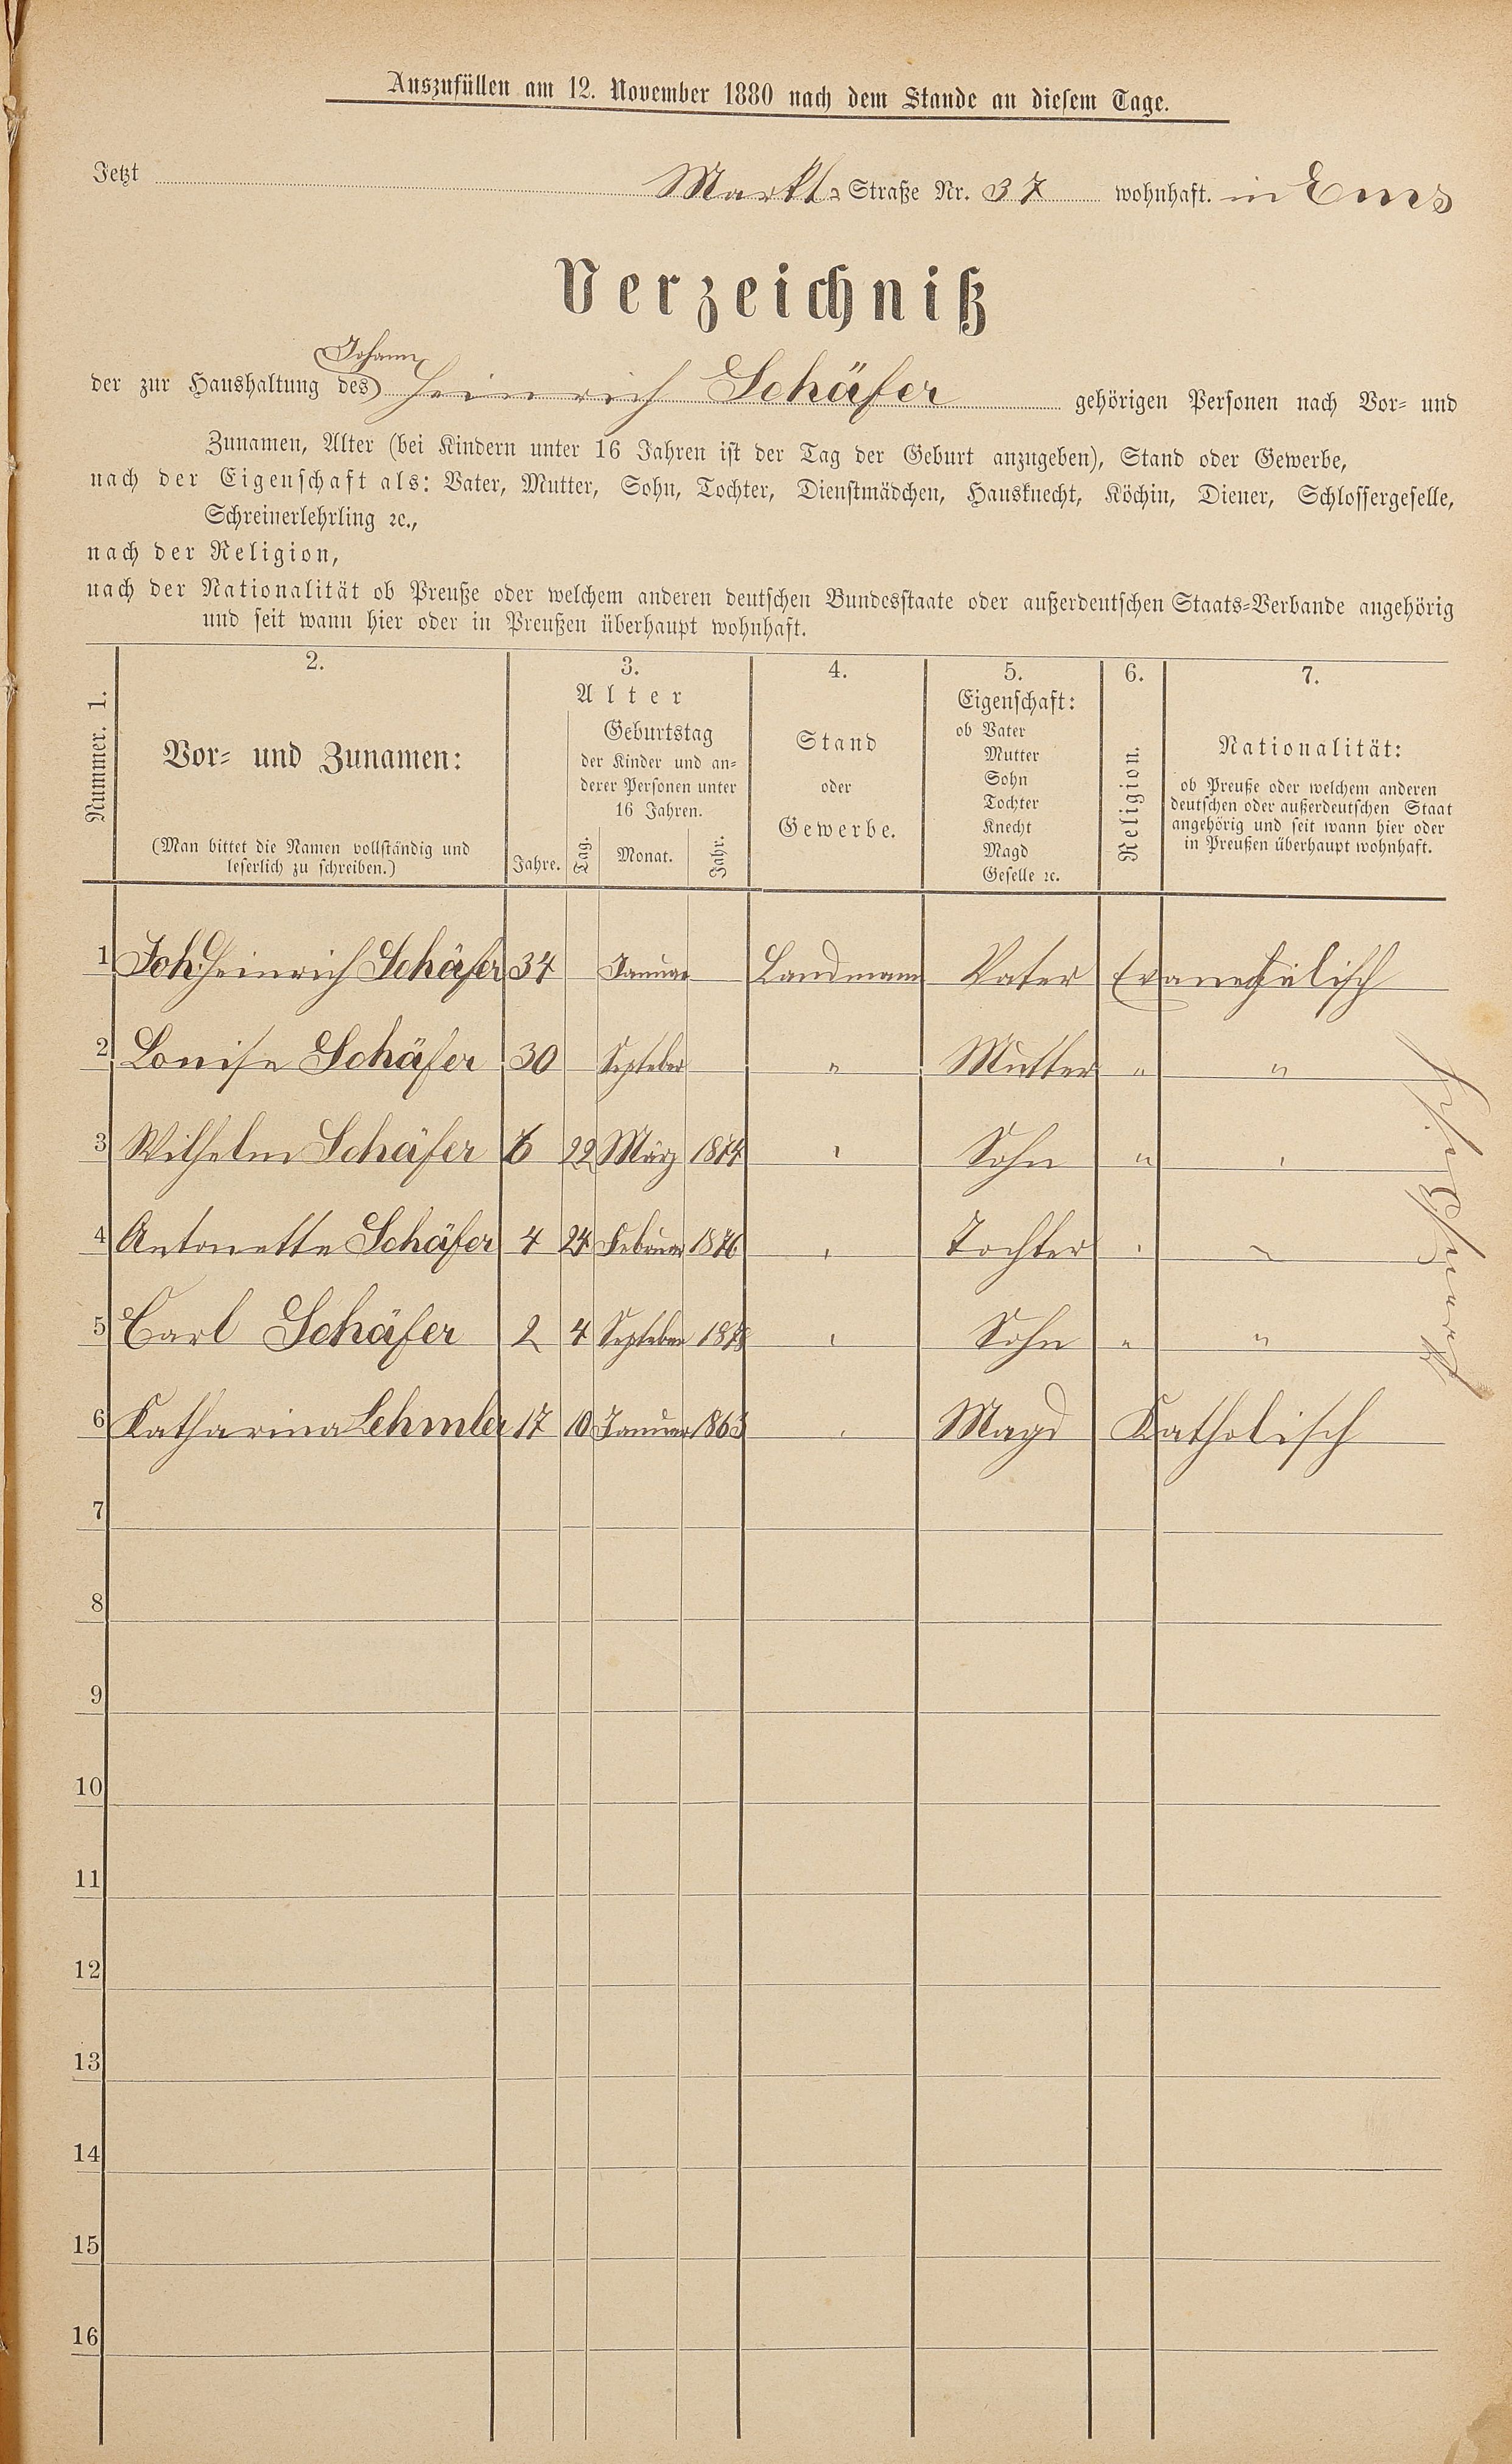 Auszufüllen am 12. November 1880 nach dem Stande an diesem Tage.
Jetzt Markt= Straße Nr. 37 wohnhaft. in Ems
Verzeichniß
Johann
der zur Haushaltung des Heinrich Schäfer gehörigen Personen nach Vor= und
Zunamen, Alter (bei Kindern unter 16 Jahren ist der Tag der Geburt anzugeben), Stand oder Gewerbe,
nach der Eigenschaft als: Vater, Mutter, Sohn, Tochter, Dienstmädchen, Hausknecht, Köchin, Diener, Schlossergeselle,
Schreinerlehrling ꝛc.,
nach der Religion,
nach der Nationalität ob Preuße oder welchem anderen deutschen Bundesstaate oder außerdeutschen Staats=Verbande angehörig
und seit wann hier oder in Preußen überhaupt wohnhaft.
Nummer. 1.
2.
Vor= und Zunamen:
(Man bittet die Namen vollständig und
leserlich zu schreiben.)
3.
Alter
Jahre.
Geburtstag
der Kinder und an=
derer Personen unter
16 Jahren.
Tag. Monat. Jahr.
4.
Stand
oder
Gewerbe.
5.
Eigenschaft:
ob Vater
Mutter
Sohn
Tochter
Knecht
Magd
Geselle ꝛc.
6.
Religion.
7.
Nationalität:
ob Preuße oder welchem anderen
deutschen oder außerdeutschen Staat
angehörig und seit wann hier oder
in Preußen überhaupt wohnhaft.
1 Joh. Heinrich Schäfer 34 Januar Landmann Vater Evangelisch
2 Louise Schäfer 30 Septeber " Mutter " "
3 Wilhelm Schäfer 6 22 März 1874 " Sohn " "
4 Antonette Schäfer 4 24 Februar 1876 " Tochter " "
5 Carl Schäfer 2 4 Septeber 1878 " Sohn " "
6 Katharina Lehmler 17 10 Januar 1863 " Magd Katholisch
7
8
9
10
11
12
13
14
15
16